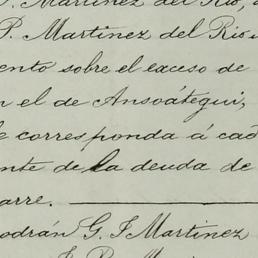 Martinez del Rio,
P. Martinez del Rio
ento sobre el exceso de
n el de Ansoátegui,
e corresponda á cad
nte de la deuda de
arre.
odrán G. J Martinez